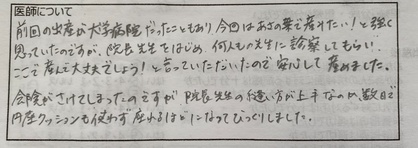 医師について
前回の出産が大学病院だったこともあり、今回はあさの葉で産けたい！と強く
思っていたのですが、院長先生をはじめ、何人もの先生に診察してもらい、
ここで産んで大丈夫でしょう！と言っていただいたので安心して産めました。
会陰がさけてしまったのですが院長先生の縫い方が上手なのか、数日で
円座クッションも使わず座れるほどになってびっくりしました。